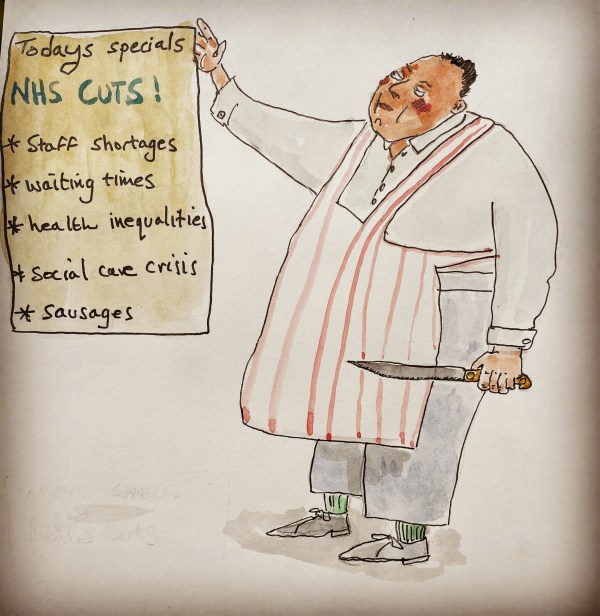 Todays specials
NHS CUTS!
* Staff shortages
* waiting times
* health inequalities
* Social care crisis
* Sausages